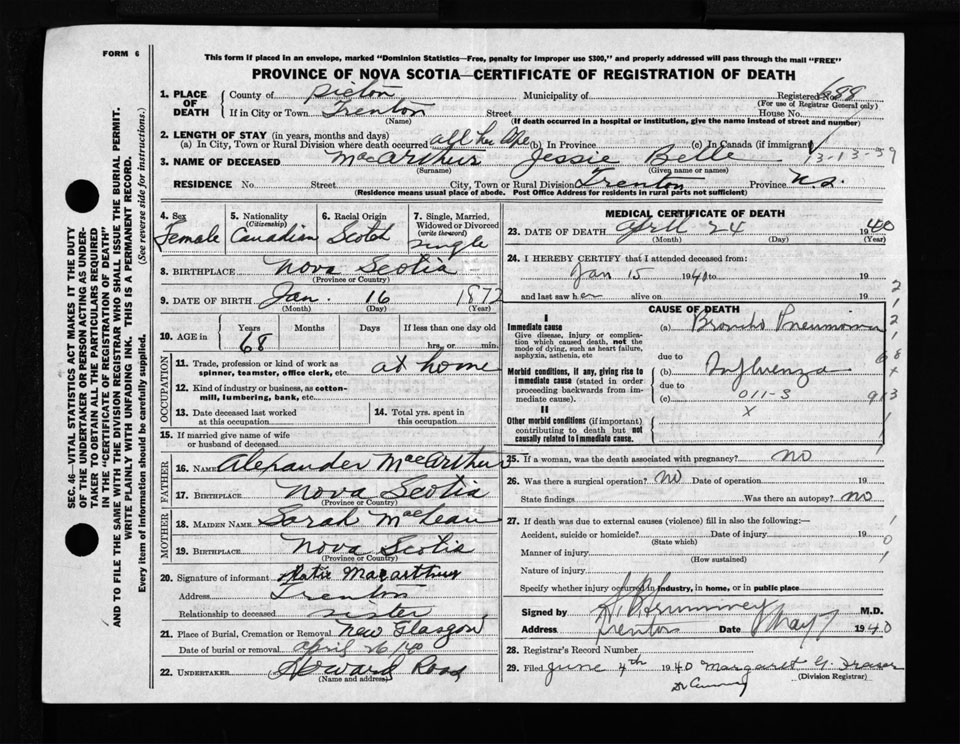 FORM 6
This form if placed in an envelope, marked "Dominion Statistics—Free, penalty for improper use $300," and properly addressed will pass through the mail "FREE"
PROVINCE OF NOVA SCOTIA—CERTIFICATE OF REGISTRATION OF DEATH
SEC. 46—VITAL STATISTICS ACT MAKES IT THE DUTY
OF THE UNDERTAKER OR PERSON ACTING AS UNDER-
TAKER TO OBTAIN ALL THE PARTICULARS REQUIRED
IN THE "CERTIFICATE OF REGISTRATION OF DEATH"
AND TO FILE THE SAME WITH THE DIVISION REGISTRAR WHO SHALL ISSUE THE BURIAL PERMIT.
WRITE PLAINLY WITH UNFADING INK. THIS IS A PERMANENT RECORD.
Every item of information should be carefully supplied. (See reverse side for instructions.)
1. PLACE OF DEATH
County of Pictou Municipality of Registered No. 688
(For use of Registrar General only)
If in City or Town Trenton Street House No.
(Name) (If death occurred in a hospital or institution, give the name instead of street and number)
2. LENGTH OF STAY (in years, months and days)
(a) In City, Town or Rural Division where death occurred all her life (b) In Province (c) In Canada (if immigrant)
13-13-59
3. NAME OF DECEASED MacArthur Jessie Belle
(Surname) (Given name or names)
RESIDENCE No. Street City, Town or Rural Division Trenton Province N.S.
(Residence means usual place of abode. Post Office Address for residents in rural parts not sufficient)
4. Sex Female
5. Nationality (Citizenship) Canadian
6. Racial Origin Scotch
7. Single, Married, Widowed or Divorced (write the word) single
8. BIRTHPLACE Nova Scotia
(Province or Country)
9. DATE OF BIRTH Jan. 16 1872
(Month) (Day) (Year)
10. AGE in Years Months Days If less than one day
68 hrs. or min.
OCCUPATION
11. Trade, profession or kind of work as spinner, teamster, office clerk, etc. at home
12. Kind of industry or business, as cotton-mill, lumbering, bank, etc.
13. Date deceased last worked at this occupation
14. Total yrs. spent in this occupation
15. If married give name of wife or husband of deceased
FATHER
16. NAME Alexander MacArthur
17. BIRTHPLACE Nova Scotia
(Province or Country)
MOTHER
18. MAIDEN NAME Sarah MacLean
19. BIRTHPLACE Nova Scotia
(Province or Country)
20. Signature of informant Katie Macarthur
Address Trenton
Relationship to deceased sister
21. Place of Burial, Cremation or Removal New Glasgow
Date of burial or removal April 26/40
22. UNDERTAKER Howard Ross
(Name and address)
MEDICAL CERTIFICATE OF DEATH
23. DATE OF DEATH April 24 1940
(Month) (Day) (Year)
24. I HEREBY CERTIFY that I attended deceased from:
Jan 15 1940 to 19
and last saw her alive on 19
CAUSE OF DEATH
I
Immediate cause
Give disease, injury or complication which caused death, not the mode of dying, such as heart failure, asphyxia, asthenia, etc
(a) Broncho Pneumonia
due to
Morbid conditions, if any, giving rise to immediate cause (stated in order proceeding backwards from immediate cause).
(b) Influenza
due to
(c) 011-3
II
Other morbid conditions (if important) contributing to death but not causally related to immediate cause.
X
25. If a woman, was the death associated with pregnancy? no
26. Was there a surgical operation? no Date of operation 19
State findings Was there an autopsy? no
27. If death was due to external causes (violence) fill in also the following:—
Accident, suicide or homicide? Date of injury 19
(State which)
Manner of injury
(How sustained)
Nature of injury
Specify whether injury occurred in industry, in home, or in public place
Signed by M.D.
Address Trenton Date May 7 1940
28. Registrar's Record Number
29. Filed June 4th 1940 Margaret G. Fraser
(Division Registrar)